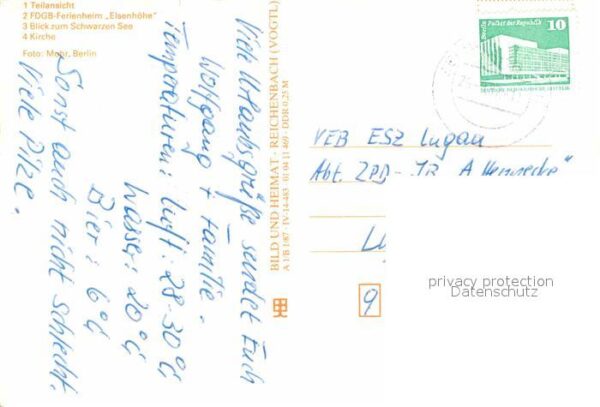 1 Teilansicht
2 FDGB-Ferienheim „Elsenhöhe"
3 Blick zum Schwarzen See
4 Kirche
Foto: Mohr, Berlin
Viele Urlaubsgrüße sendet Euch
Wolfgang + Familie.
Temperaturen: Luft: 28-30°C
Wasser: 20°C
Bier: 6°C
Sonst auch nicht schlecht.
Viele Pilze.
BILD UND HEIMAT · REICHENBACH (VOGTL)
A 1/B 1/87 · IV-14-483 · 01 04 11 469 · DDR 0,25 M
Berlin, Palast der Republik
10
DEUTSCHE DEMOKRATISCHE REPUBLIK
VEB ESZ Lugau
Abt. ZPD - JR „A Hennecke"
9
privacy protection
Datenschutz